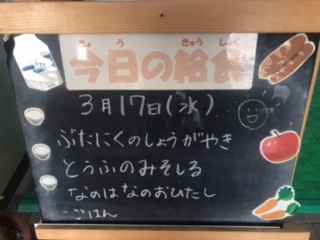 きょう きゅうしょく
今日の給食
3月17日(水)
ぶたにくのしょうがやき
とうふのみそしる
なのはなのおひたし
ごはん